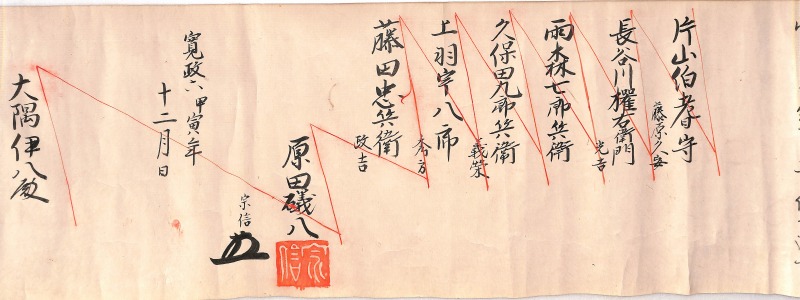 片山伯耆守
藤原久安
長谷川権右衛門
光吉
雨森七郎兵衛
久保田九郎兵衛
義栄
上羽宇八郎
秀方
藤田忠兵衛
政吉
原田磯八
宗信
寛政六甲寅年
十二月日
大隅伊八殿